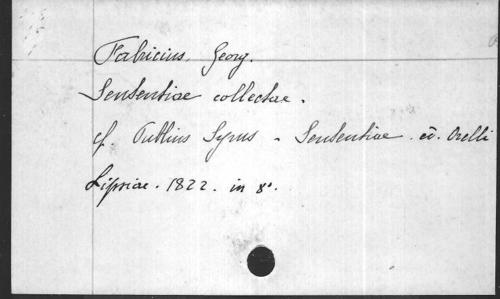 Fabricius, Georg.
Sententiae collectae.
cf Publius Syrus - Sententiae. ed. Orelli
Lipsiae. 1822. in 8°.